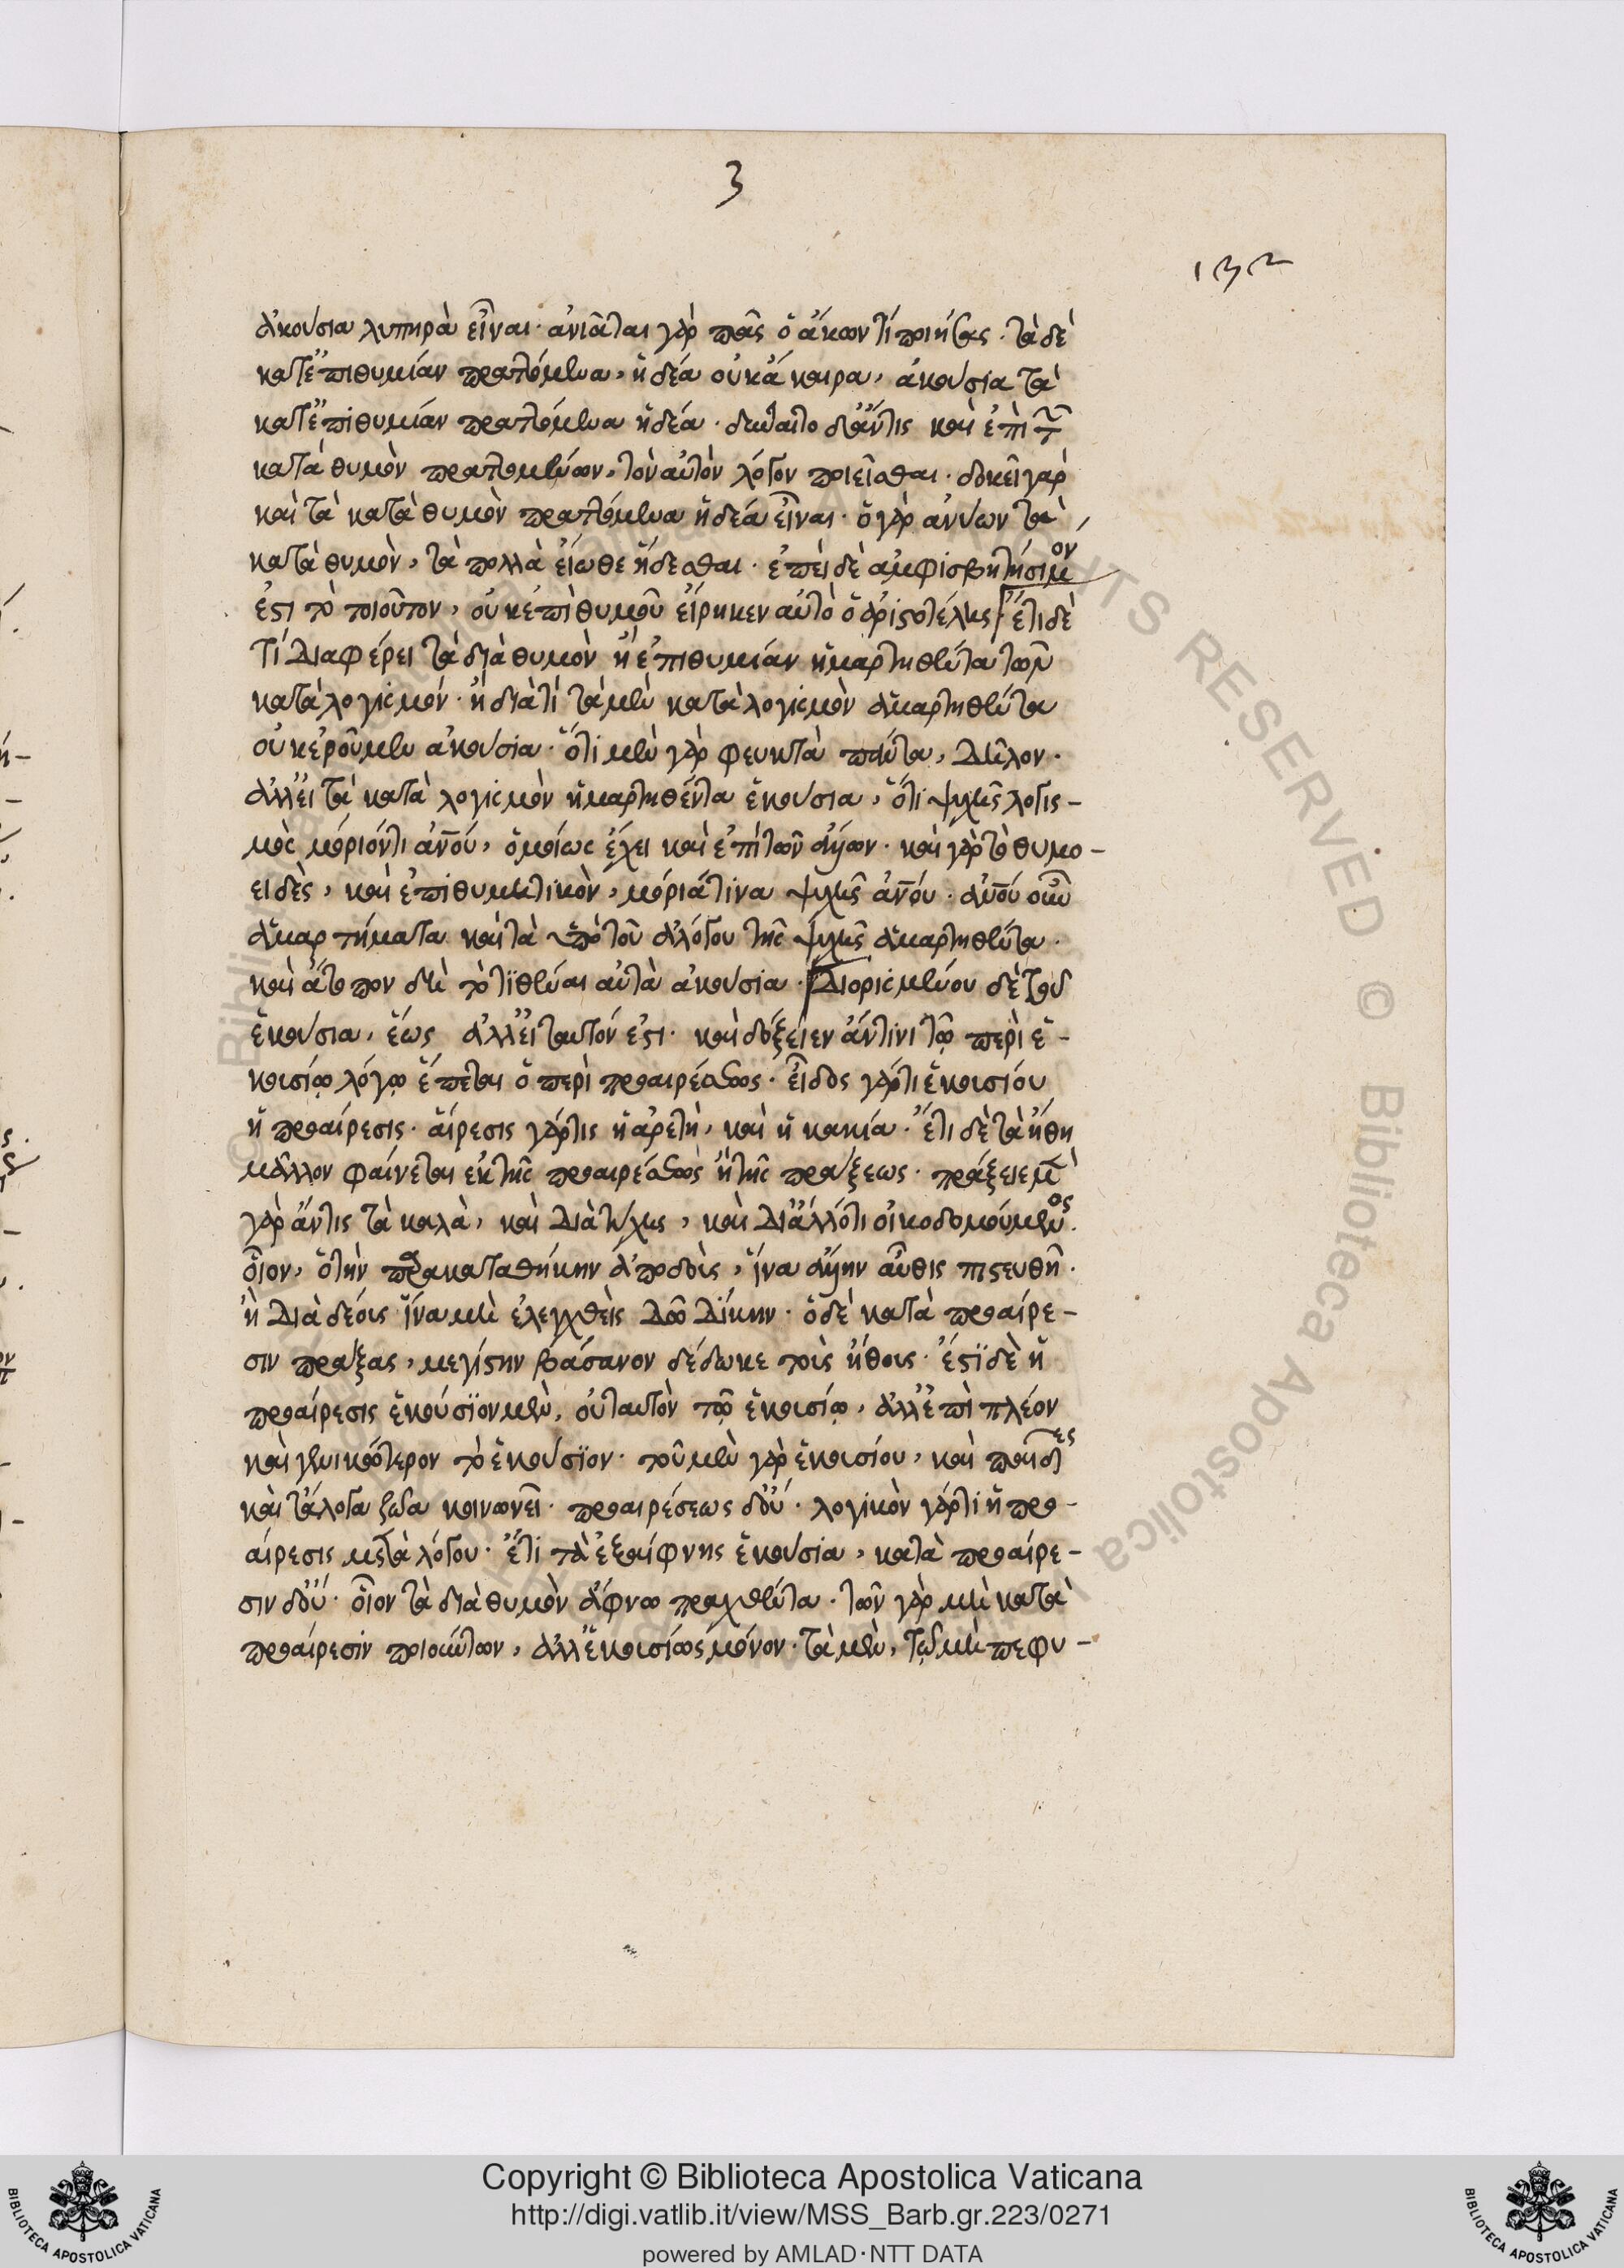 3
132
ἀκούσια λυπηρὰ εἶναι· ἀνιᾶται γὰρ πᾶς ὁ ἄκων τί ποιήσας· τὰ δὲ
κατ' ἐπιθυμίαν πραττόμενα, ἡδέα οὐκ ἄκαιρα, ἀκούσια τὰ
κατ' ἐπιθυμίαν πραττόμενα ἡδέα· δύναιτο δ' ἄν τις καὶ ἐπὶ τῶν
κατὰ θυμὸν πραττομένων, τὸν αὐτὸν λόγον ποιεῖσθαι· δοκεῖ γὰρ
καὶ τὰ κατὰ θυμὸν πραττόμενα ἡδέα εἶναι· ὁ γὰρ ἀνύων τὰ
κατὰ θυμὸν, τὰ πολλὰ εἴωθε ἥδεσθαι· ἐπεὶ δὲ ἀμφισβητήσιμον
ἐστι τὸ τοιοῦτον, οὐκ ἐπὶ θυμοῦ εἴρηκεν αὐτὸ ὁ ἀριστοτέλης· ἔτι δὲ
τί διαφέρει τὰ διὰ θυμὸν ἢ ἐπιθυμίαν ἡμαρτηθέντα τῶν
κατὰ λογισμόν· ἢ διὰ τί τὰ μὲν κατὰ λογισμὸν ἁμαρτηθέντα
οὐκ ἐροῦμεν ἀκούσια· ὅτι μὲν γὰρ φευκτὰ πάντα, δῆλον·
ἀλλ' εἰ τὰ κατὰ λογισμὸν ἡμαρτηθέντα ἑκούσια, ὅτι ψυχῆς λογισ-
μὸς μόριόν τι ἀνου, ὁμοίως ἔχει καὶ ἐπὶ τῶν ἄλλων· καὶ γὰρ τὸ θυμο-
ειδὲς, καὶ ἐπιθυμητικὸν, μόρια τινα ψυχῆς ἀνου· ἀνου οὖν
ἁμαρτήματα καὶ τὰ ὑπὸ τοῦ ἀλόγου τῆς ψυχῆς ἁμαρτηθέντα·
καὶ ἄτοπον δὴ τὸ τιθέναι αὐτὰ ἀκούσια· Διορισμένου δὲ τοῦ
ἑκούσια, ἕως ἀλλ' εἰ ταυτόν ἐστι· καὶ δόξειεν ἄν τινι τῷ περὶ ἑ-
κουσίῳ λόγῳ ἕπεται ὁ περὶ προαιρέσεως· εἶδος γάρ τι ἑκουσίου
ἡ προαίρεσις· αἵρεσις γάρ τις ἡ ἀρετὴ, καὶ ἡ κακία· ἔτι δὲ τὰ ἤθη
μᾶλλον φαίνεται ἐκ τῆς προαιρέσεως ἢ τῆς πράξεως· πράξειε μὲν
γὰρ ἄν τις τὰ καλὰ, καὶ διὰ τύχης, καὶ δι' ἄλλό τι οἰκοδομούμενος.
οἷον, ὁ τὴν παρακαταθήκην ἀποδοὺς, ἵνα ἄλλην αὖθις πιστευθῇ·
ἢ διὰ δέος ἵνα μὴ ἐλεγχθεὶς δῷ δίκην· ὁ δὲ κατὰ προαίρε-
σιν πράξας, μεγίστην βάσανον δέδωκε τοῖς ἤθοις· ἔστι δὲ ἡ
προαίρεσις ἑκούσιον μὲν, οὐ ταυτὸν τῷ ἑκουσίῳ, ἀλλ' ἐπὶ πλέον
καὶ γενικώτερον τὸ ἑκούσιον· τοῦ μὲν γὰρ ἑκουσίου, καὶ παῖδες
καὶ τἄλογα ζῷα κοινωνεῖ· προαιρέσεως δ' οὔ· λογικὸν γάρ τι ἡ προ-
αίρεσις μετὰ λόγου· ἔτι τὰ ἐξαίφνης ἑκούσια, κατὰ προαίρε-
σιν δ' οὔ· οἷον τὰ διὰ θυμὸν ἄφνω πραχθέντα· τῶν γὰρ μὴ κατὰ
προαίρεσιν ποιούντων, ἀλλ' ἑκουσίως μόνον· τὰ μὲν, τῷ μὴ πεφυ-
Copyright © Biblioteca Apostolica Vaticana
http://digi.vatlib.it/view/MSS_Barb.gr.223/0271
powered by AMLAD·NTT DATA